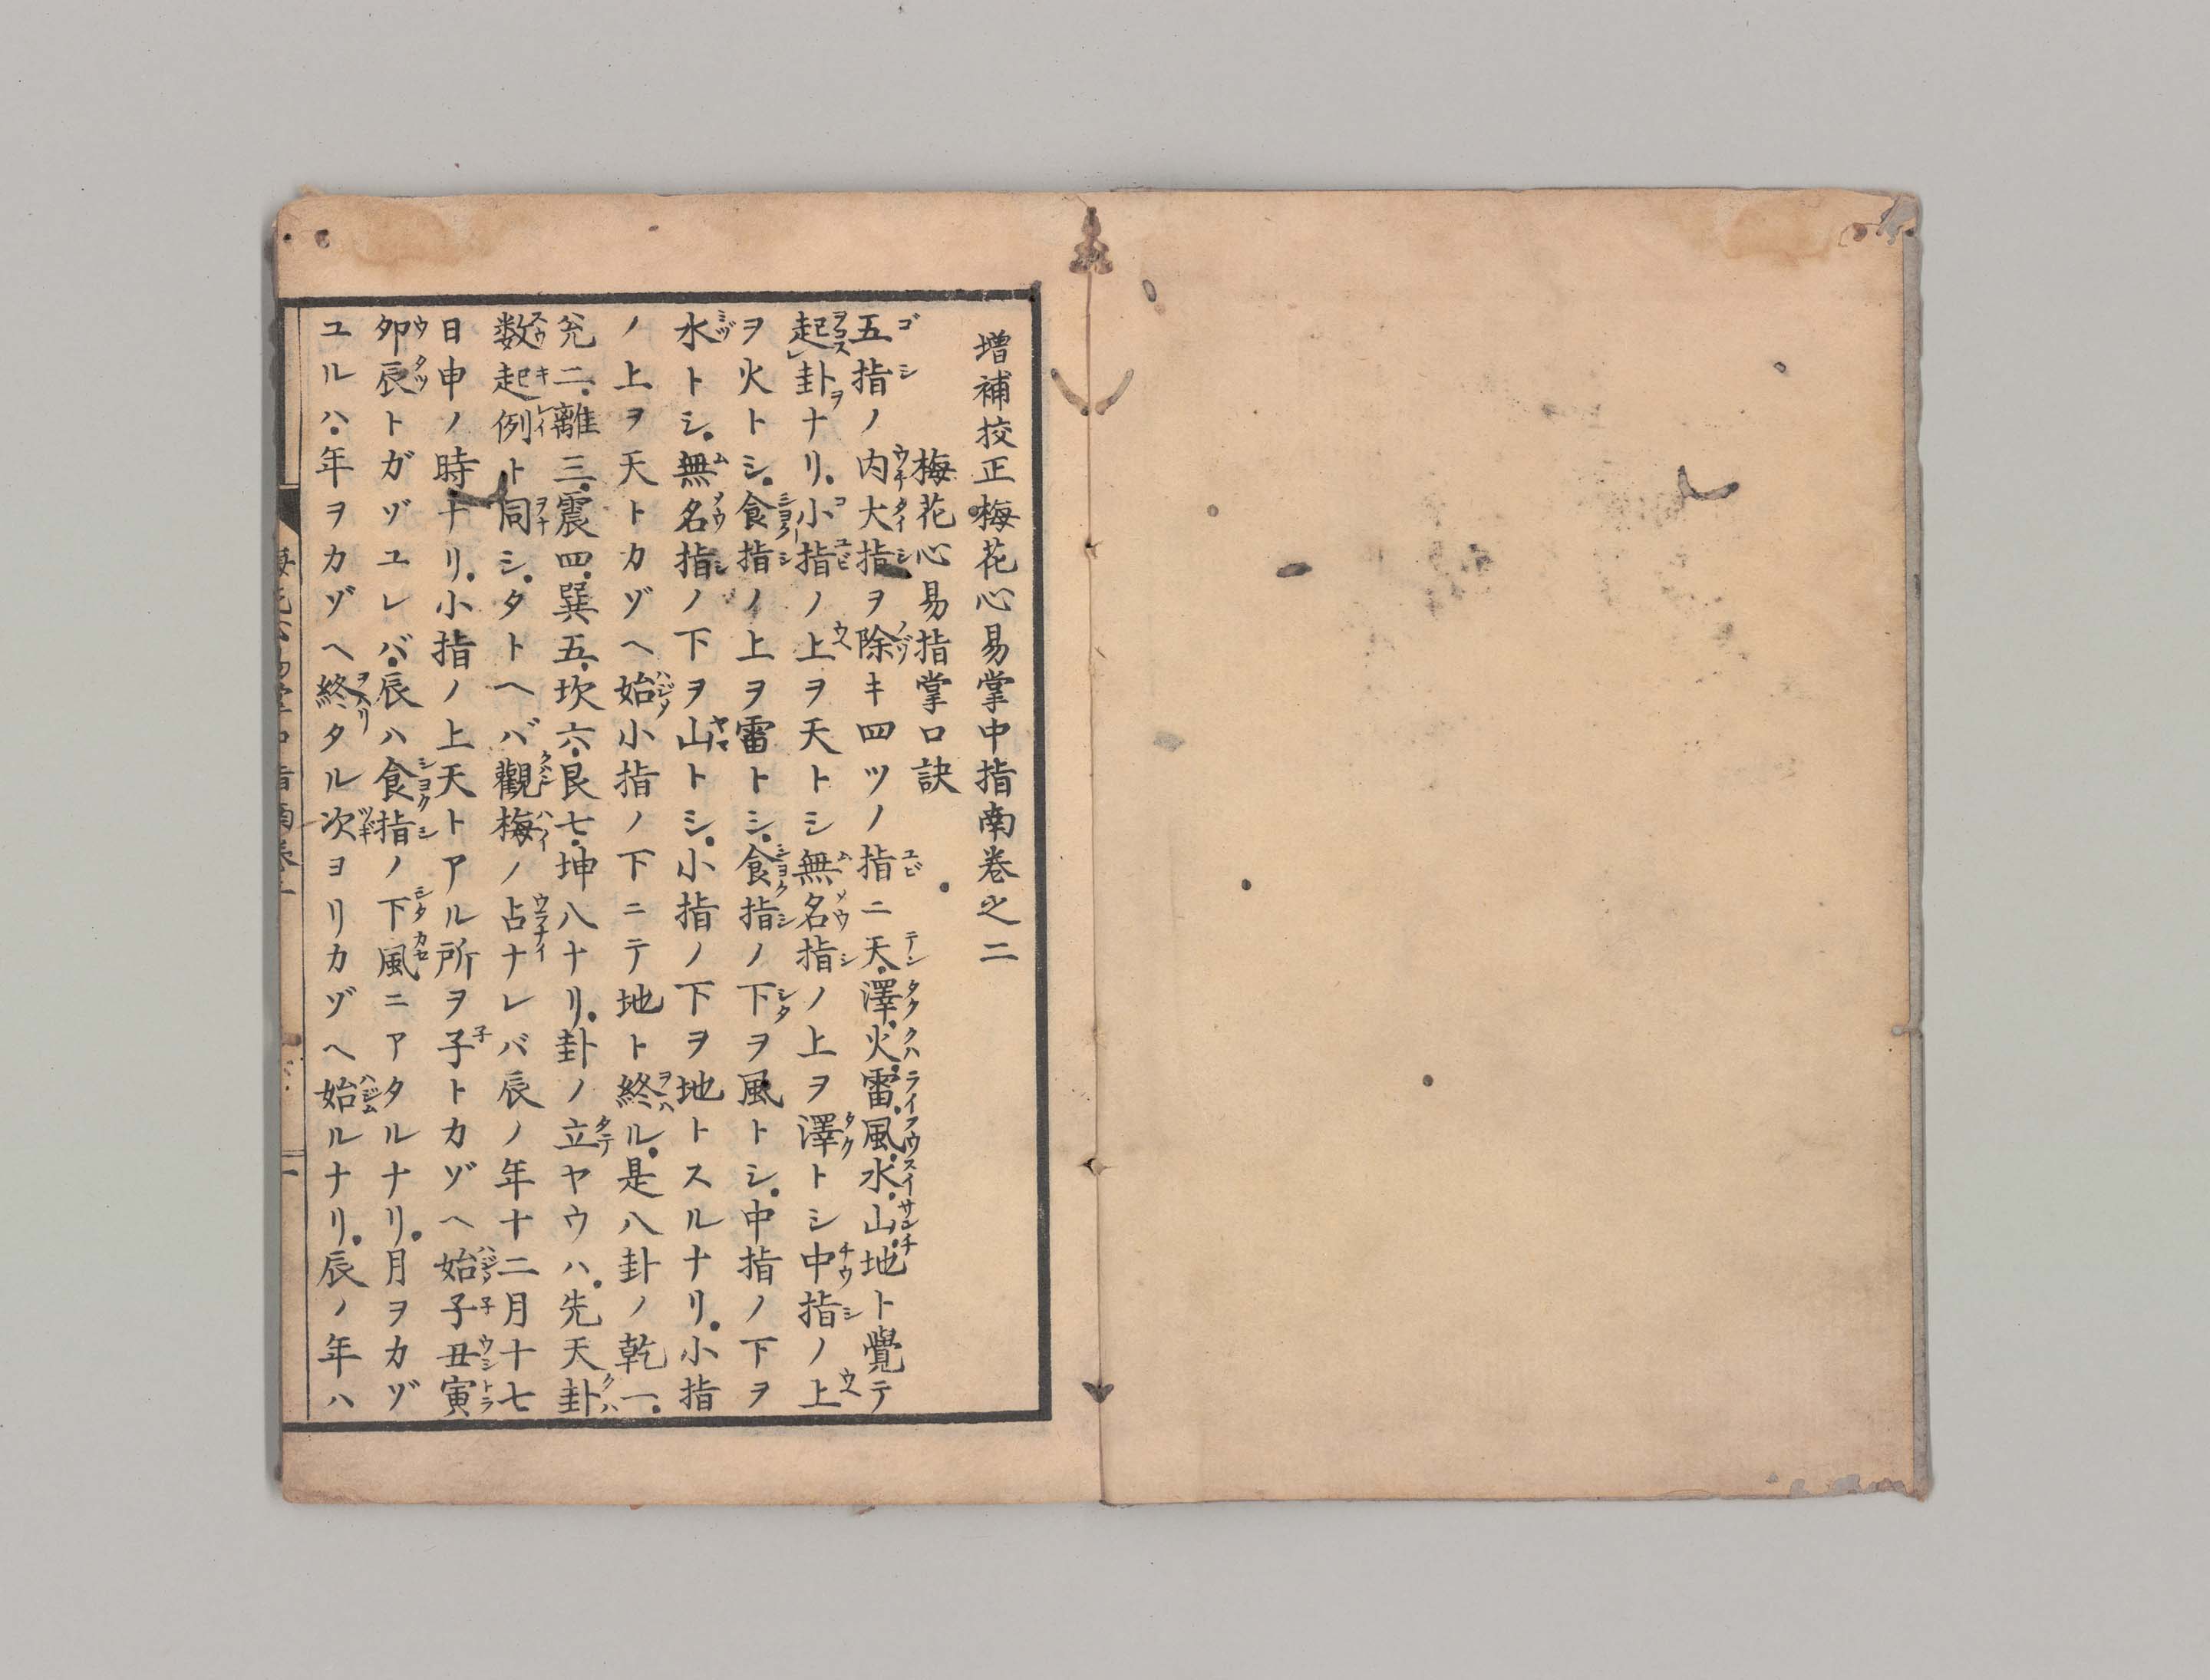 増補挍正梅花心易掌中指南巻之二
梅花心易指掌口訣
五指ノ内大指ヲ除キ四ツノ指ニ天澤火雷風水山地ト覺テ
起卦ナリ小指ノ上ヲ天トシ無名指ノ上ヲ澤トシ中指ノ上
ヲ火トシ食指ノ上ヲ雷トシ食指ノ下ヲ風トシ中指ノ下ヲ
水トシ無名指ノ下ヲ山トシ小指ノ下ヲ地トスルナリ小指
ノ上ヲ天トカゾヘ始小指ノ下ニテ地ト終ル是八卦ノ乾一
兊二離三震四巽五坎六艮七坤八ナリ卦ノ立ヤウハ先天卦
数起例ト同シタトヘバ觀梅ノ占ナレバ辰ノ年十二月十七
日申ノ時ナリ小指ノ上天トアル所ヲ子トカゾヘ始子丑寅
卯辰トガゾユレバ辰ハ食指ノ下風ニアタルナリ月ヲカゾ
ユルハ年ヲカゾヘ終タル次ヨリカゾヘ始ルナリ辰ノ年ハ